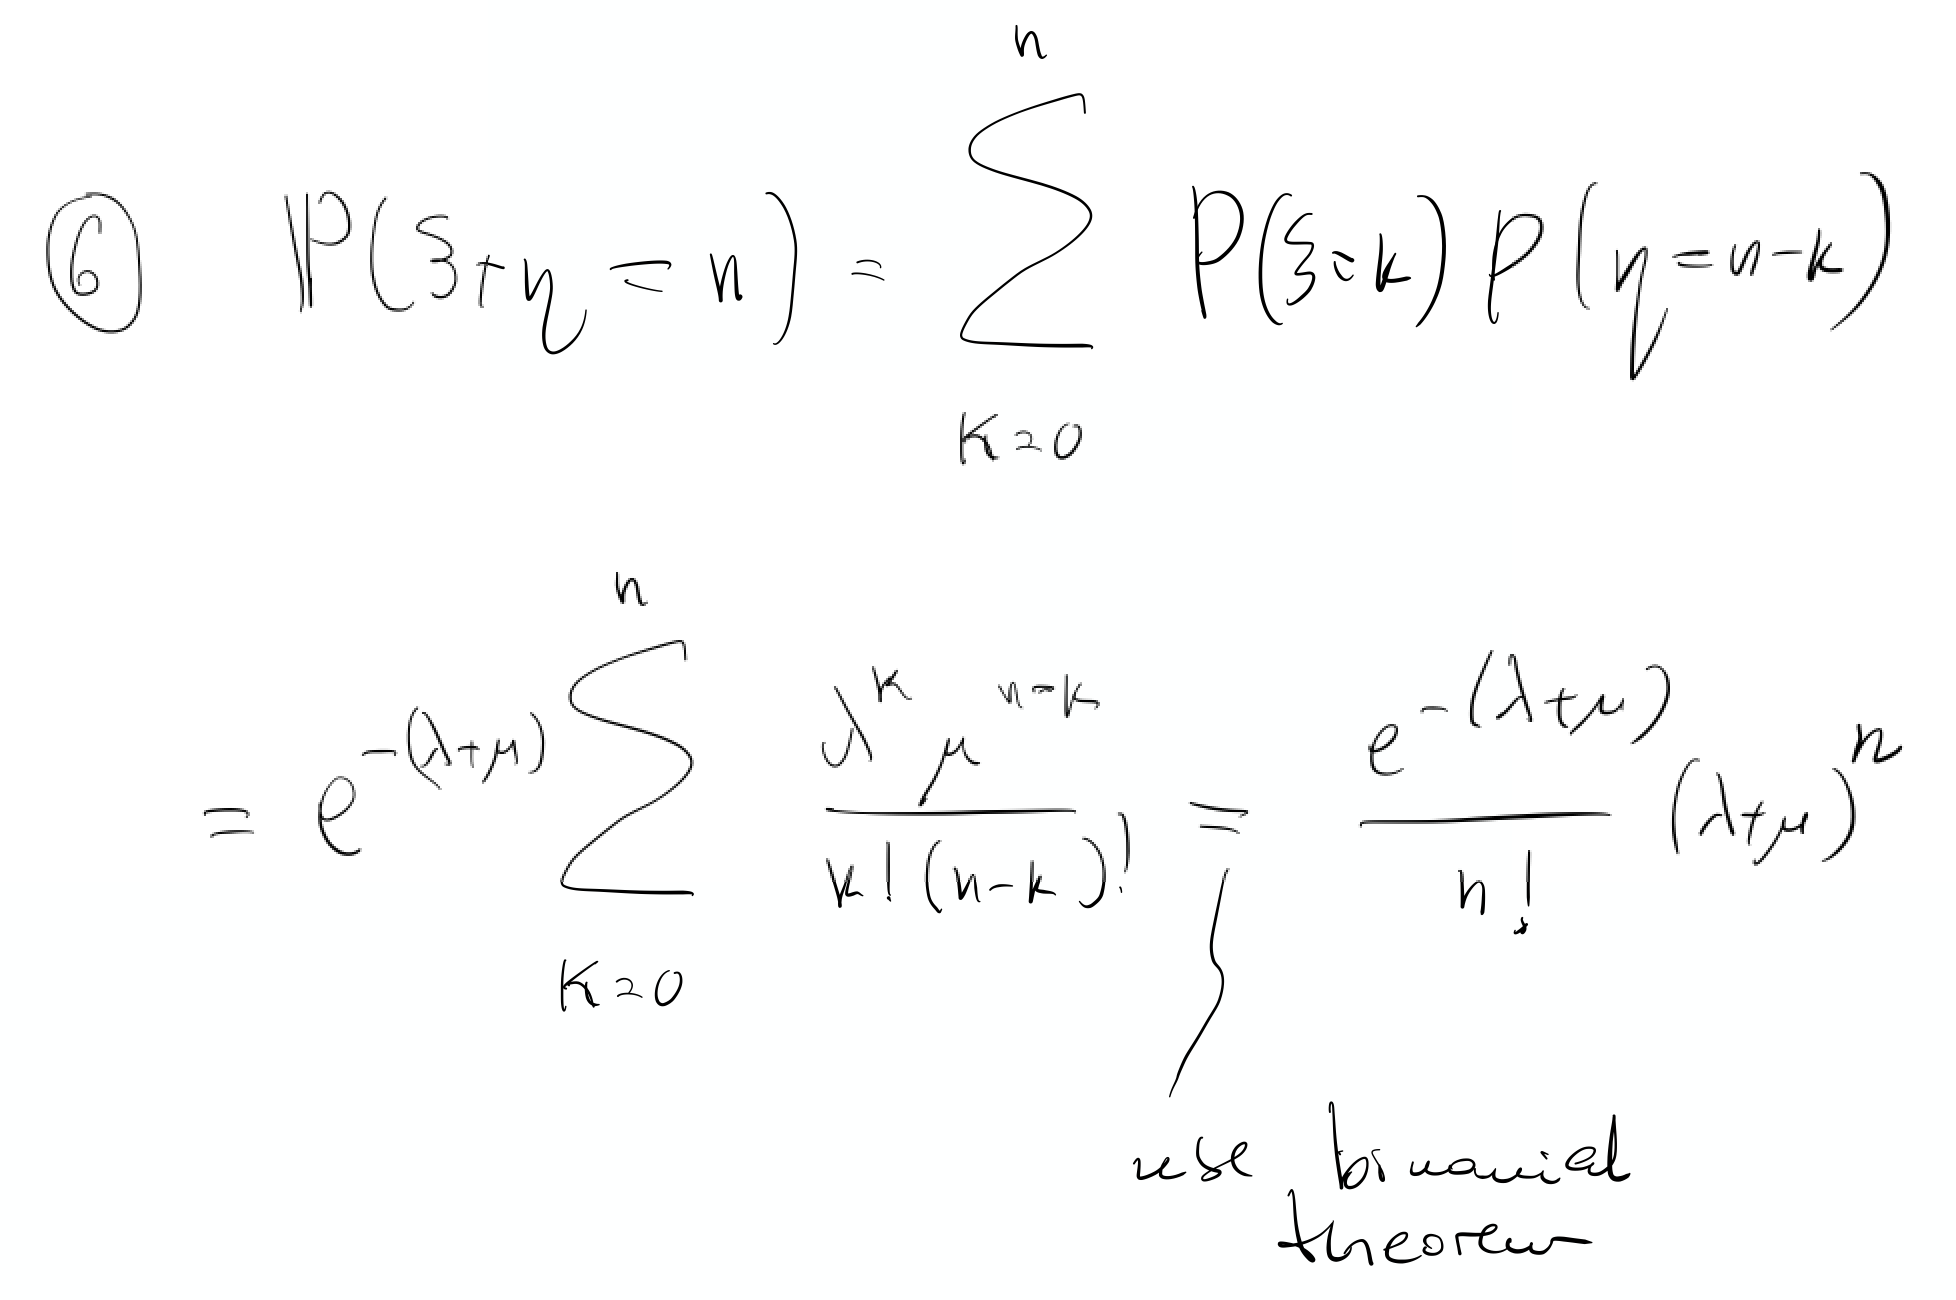 ⑥ ℙ(ξ+η = n) = \sum_{k=0}^{n} P(ξ=k) P(η=n-k)
= e^{-(λ+μ)} \sum_{k=0}^{n} \frac{λ^k μ^{n-k}}{k!(n-k)!} = \frac{e^{-(λ+μ)}}{n!} (λ+μ)^n
use binomial
theorem